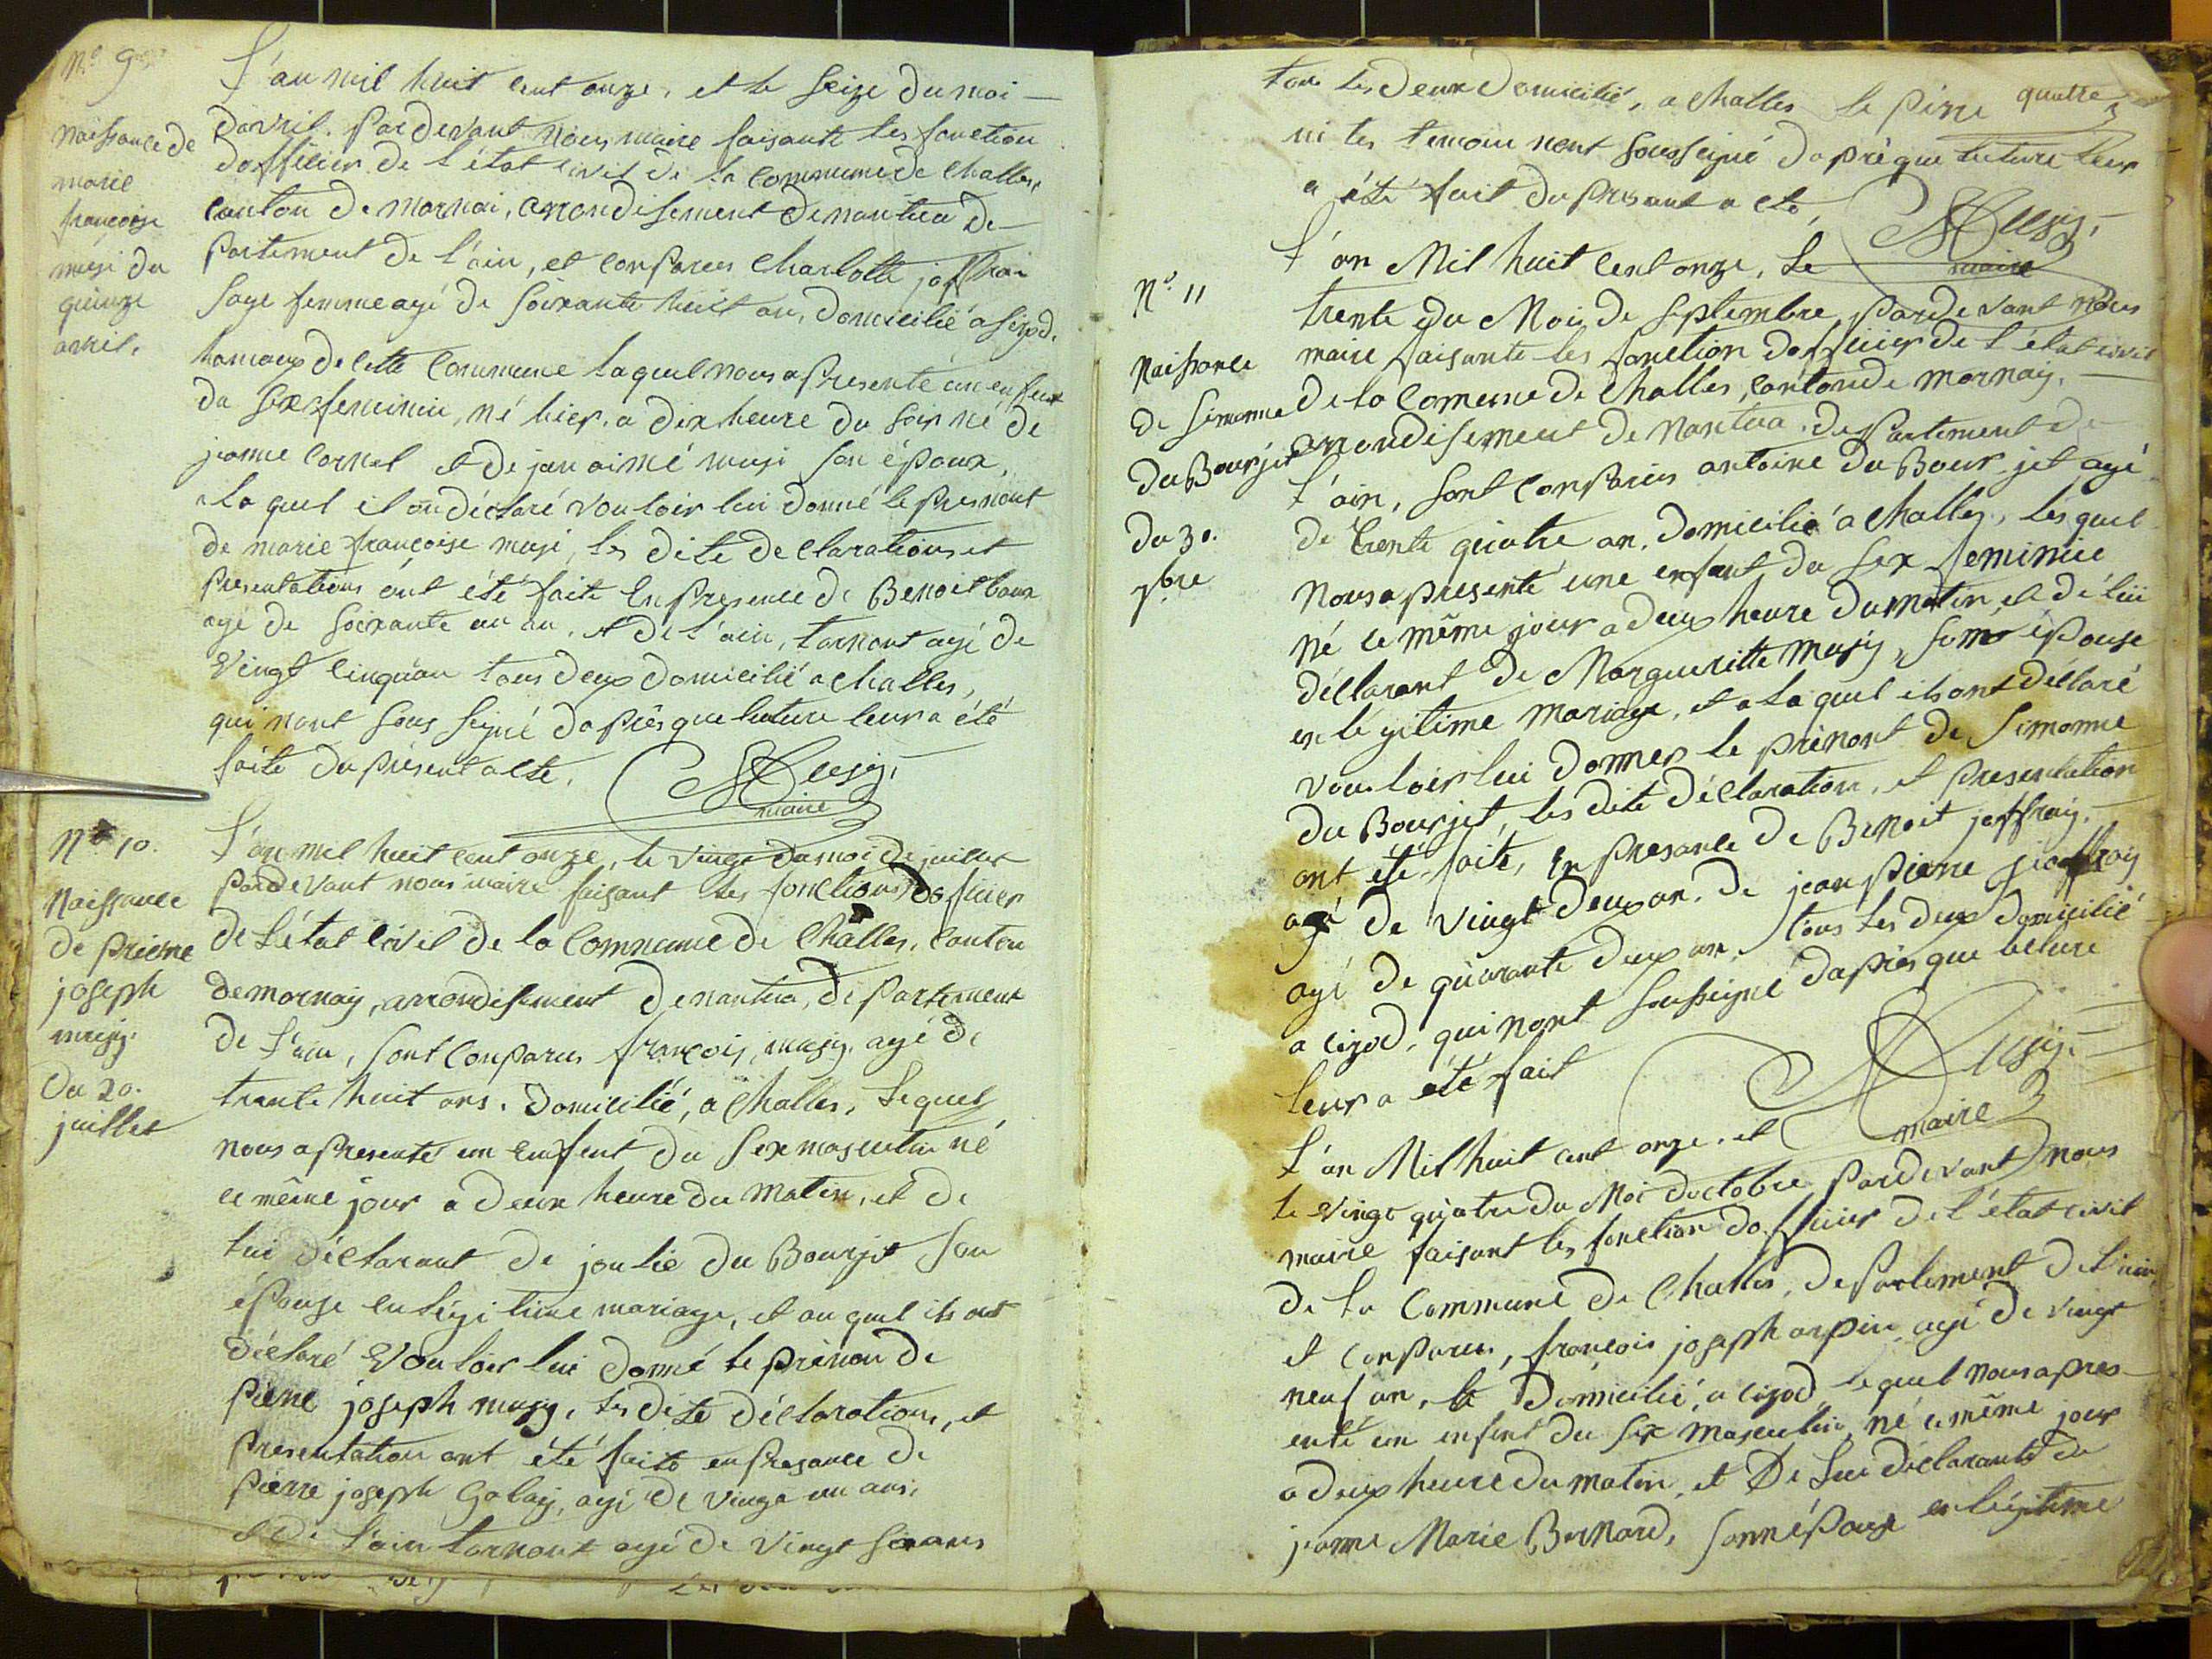 N.o 9
Naissance de
marie
françoise
musi du
quinze
avril.
L'an mil huit cent onze, et le seize du moi
davril. Pardevant nous maire faisante les fonction
dofficier de l'état civil de la commune de Challes,
canton de mornai, arrondisement de nantua de-
Partement de l'ain, et comparus Charlotte joffrai
sage femme agé de soixante huit an, domicilié a
hameaux de cette commune laquel nous a Presenté un enfent
du sex feminin, né hier, a dix heure du soir né de
janne Cornet et de jan aimé musi son époux,
a la quel il on déclaré vouloir lui donné le prenont
de marie françoise musi, les dite declarations et
Presentations ont été faite en presence de Benoit
agé de soixante un an, et de l'ain, tornont agé de
vingt cinq an tous deux domicilié a Challes,
qui nont sous signé daprês que lecture leur a été
faite du présent acte.
Musy,
maire
N.o 10.
Naissance
de Prierre
joseph
musy.
du 20.
juillet
L'an mil huit cent onze, le vingt du moi de juillet
pardevant nous maire faisant les fonctions dofficier
de l'état civil de la commune de Challes, canton
de mornay, arrondisement de nantua, departement
de l'ain, sont conparus françois musy. agé de
trante huit ans. domicilié, a Challes, lequel
nous a presenté un enfent du sex masculin né
ce même jour a deux heure du matin, et de
lui déclarant de joulie du Bourjet son
épouse en légitime mariage, et au quel ils ont
déclaré vouloir lui donné le prénon de
pierre joseph musy, les dite déclarations, et
presentation ont été faite en presance de
pierre joseph Golay, agé de vingt un ans,
et de l'ain tornont agé de vingt
tous les deux domicilié, a Challes le pére
quatre
ni les temoin nont soussigné daprè que lecture leur
a été fait du present acte,
Musy,
maire
N.o 11
Naissance
de Simonne
du Bourjet
du 30.
7bre
L'an Mil huit cent onze, le
trente du Moi de septembre pardevant nous
maire faisante les fonction dofficier de l'état civil
de la comune de Challes, canton de mornay,
arrondisement de nantua, departement de
l'ain, sont conparus antoine du Bour jet agé
de trente quatre an, domicilié a Challes, lesquel
nous a presenté une enfant du sex feminin
né ce même jour a deux heure du matin, et de lui
déclarant de Margueritte musy, somr épouse
en légitime mariage, et a laquel ils ont déclaré
vouloir lui donner le prénont de Simonne
du Bourjet, les dite déclaration, et presentation
ont été faite, en presance de Benoit joffray.
agé de vingt deux an. de jean pierre joffray
agé de quarante deux an, tous les deux domicilié
a cizod, qui nont soussigné daprès que lecture
leur a été fait
Musy.
maire
L'an Mil huit cent onze. et
le vingt quatre du Moi doctobre Pardevant nous
maire faisant les fonction dofficier de l'état civil
de la Commune de Challes, departement de l'ain,
et conparus, françois joseph arpin agé de vingt
neuf an, le Domicilié, a cizod lequel nous a pres-
enté un enfent du sex masculin, né ce même jour
a deux heure du matin, et De lui déclarante de
janne Marie Bernard, sonn épouse en légitime